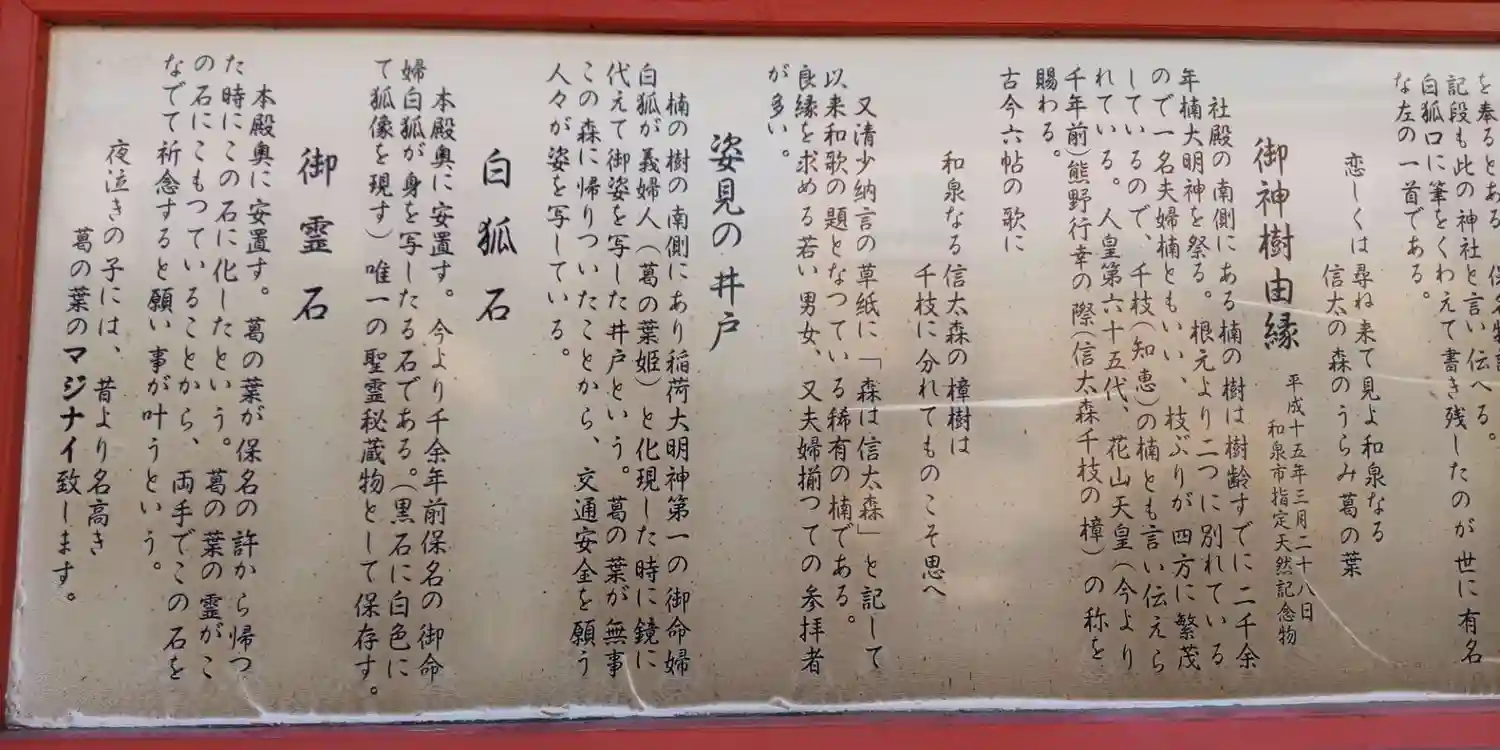 を奉るとある。
記段も此の神社と言い伝へる。
白狐口に筆をくわえて書き残したのが世に有名
な左の一首である。
恋しくは尋ね来て見よ和泉なる
信太の森のうらみ葛の葉
御神樹由縁
平成十五年三月二十八日
和泉市指定天然記念物
社殿の南側にある楠の樹は樹齢すでに二千余
年楠大明神を祭る。根元より二つに別れている
ので一名夫婦楠ともいい、枝ぶりが四方に繁茂
しているので、千枝(知恵)の楠とも言い伝えら
れている。人皇第六十五代、花山天皇(今より
千年前)熊野行幸の際(信太森千枝の樟)の称を
賜わる。
古今六帖の歌に
和泉なる信太森の樟樹は
千枝に分れてものこそ思へ
又清少納言の草紙に「森は信太森」と記して
以来和歌の題となつている稀有の楠である。
良縁を求める若い男女、又夫婦揃つての参拝者
が多い。
姿見の井戸
楠の樹の南側にあり稲荷大明神第一の御命婦
白狐が義婦人(葛の葉姫)と化現した時に鏡に
代えて御姿を写した井戸という。葛の葉が無事
この森に帰りついたことから、交通安全を願う
人々が姿を写している。
白狐石
本殿奥に安置す。今より千余年前保名の御命
婦白狐が身を写したる石である。(黒石に白色に
て狐像を現す)唯一の聖霊秘蔵物として保存す。
御霊石
本殿奥に安置す。葛の葉が保名の許から帰つ
た時にこの石に化したという。葛の葉の霊がこ
の石にこもつていることから、両手でこの石を
なでて祈念すると願い事が叶うという。
夜泣きの子には、昔より名高き
葛の葉のマジナイ致します。